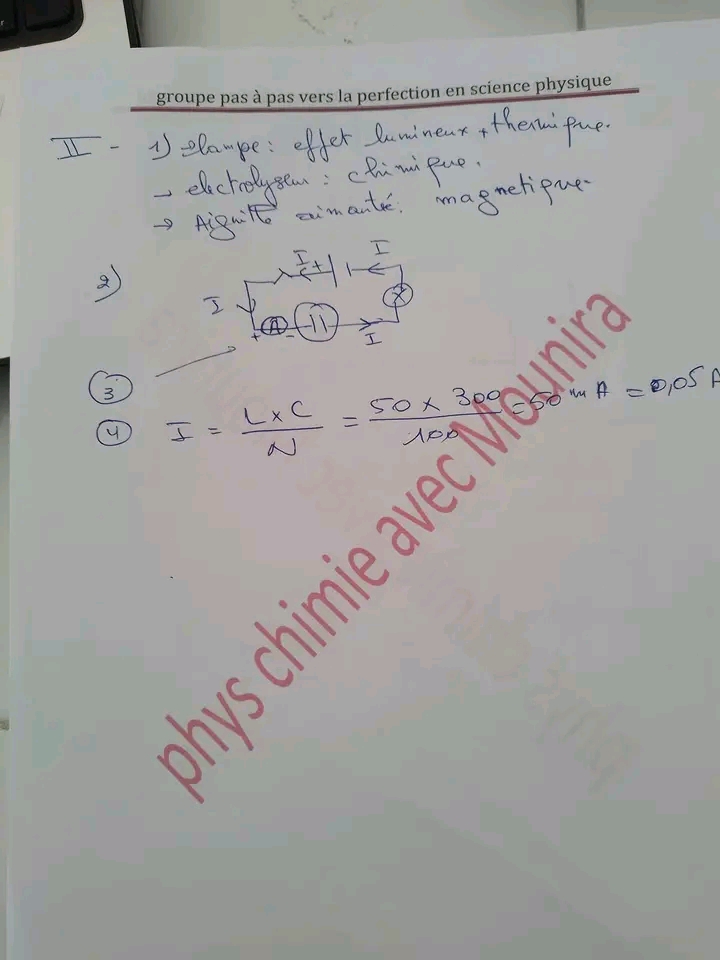 groupe pas à pas vers la perfection en science physique
II - 1) → lampe : effet lumineux + thermique.
→ electrolyseur : chimique.
→ Aiguille aimantée : magnetique.
2)
I I
+
I X
A
+ - I
3
4 I = L x C / N = 50 x 300 / 100 = 50 mA = 0,05 A
phys chimie avec Mounira